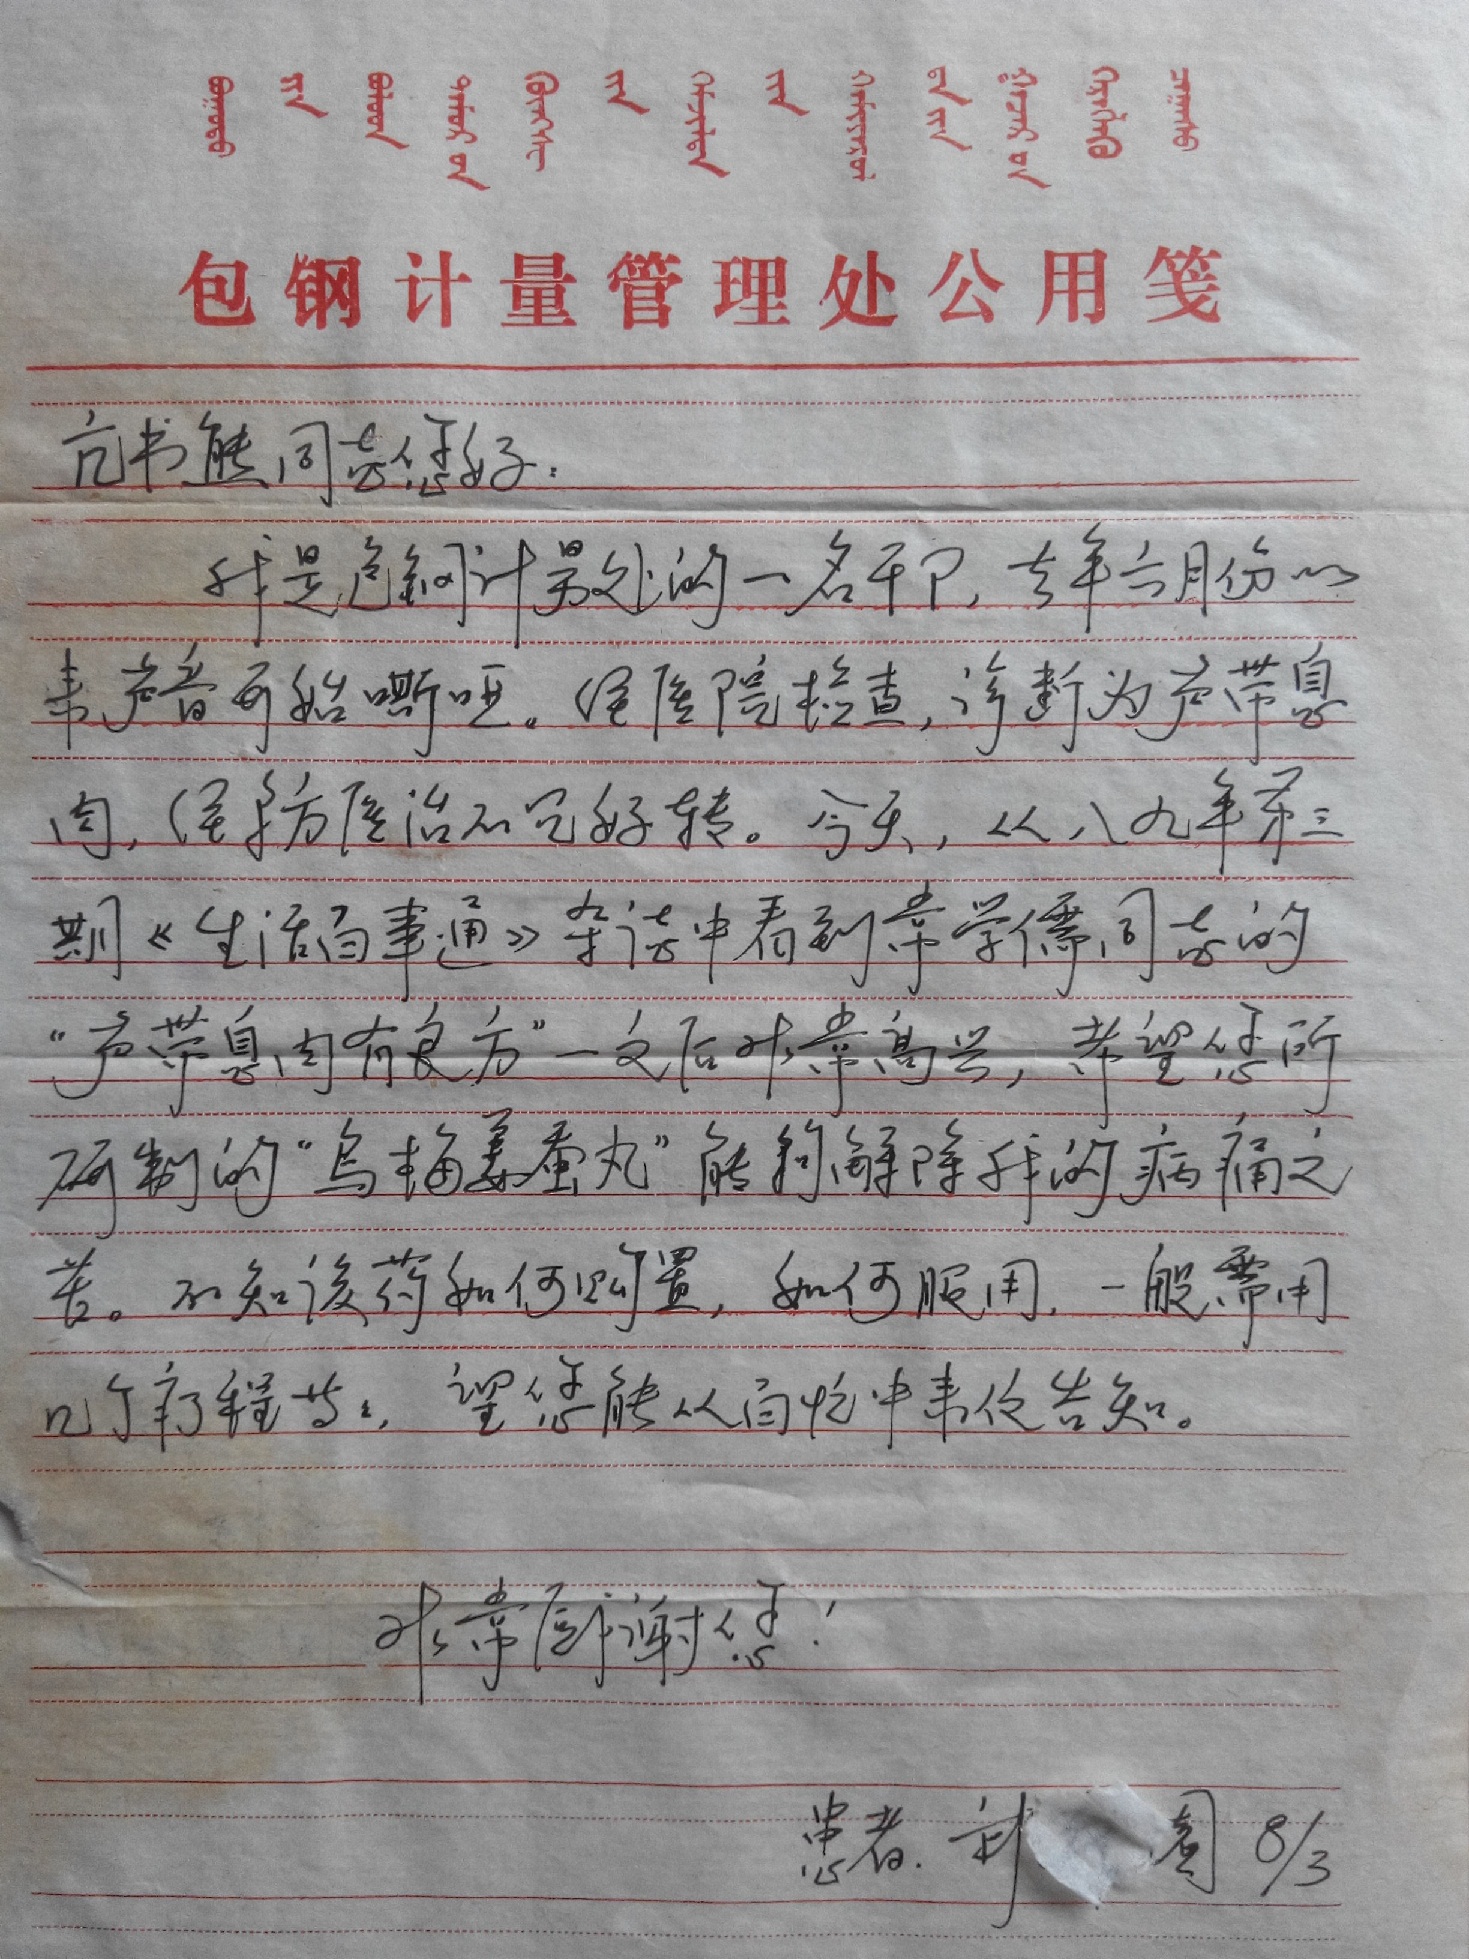 包钢计量管理处公用笺
亢书熊同志您好：
我是包钢计量处的一名干卩，去年六月份以
来声音开始嘶哑。经医院检查，诊断为声带息
肉，经多方医治不见好转。今天，从八九年第三
期《生活百事通》杂志中看到常学儒同志的
“声带息肉有良方”一文后非常高兴，希望您所
研制的“乌梅姜蚕丸”能够解除我的病痛之
苦。不知该药如何购置，如何服用，一般需用
几个疗程等等，望您能从百忙中来信告知。
非常感谢您！
患者 武 8/3